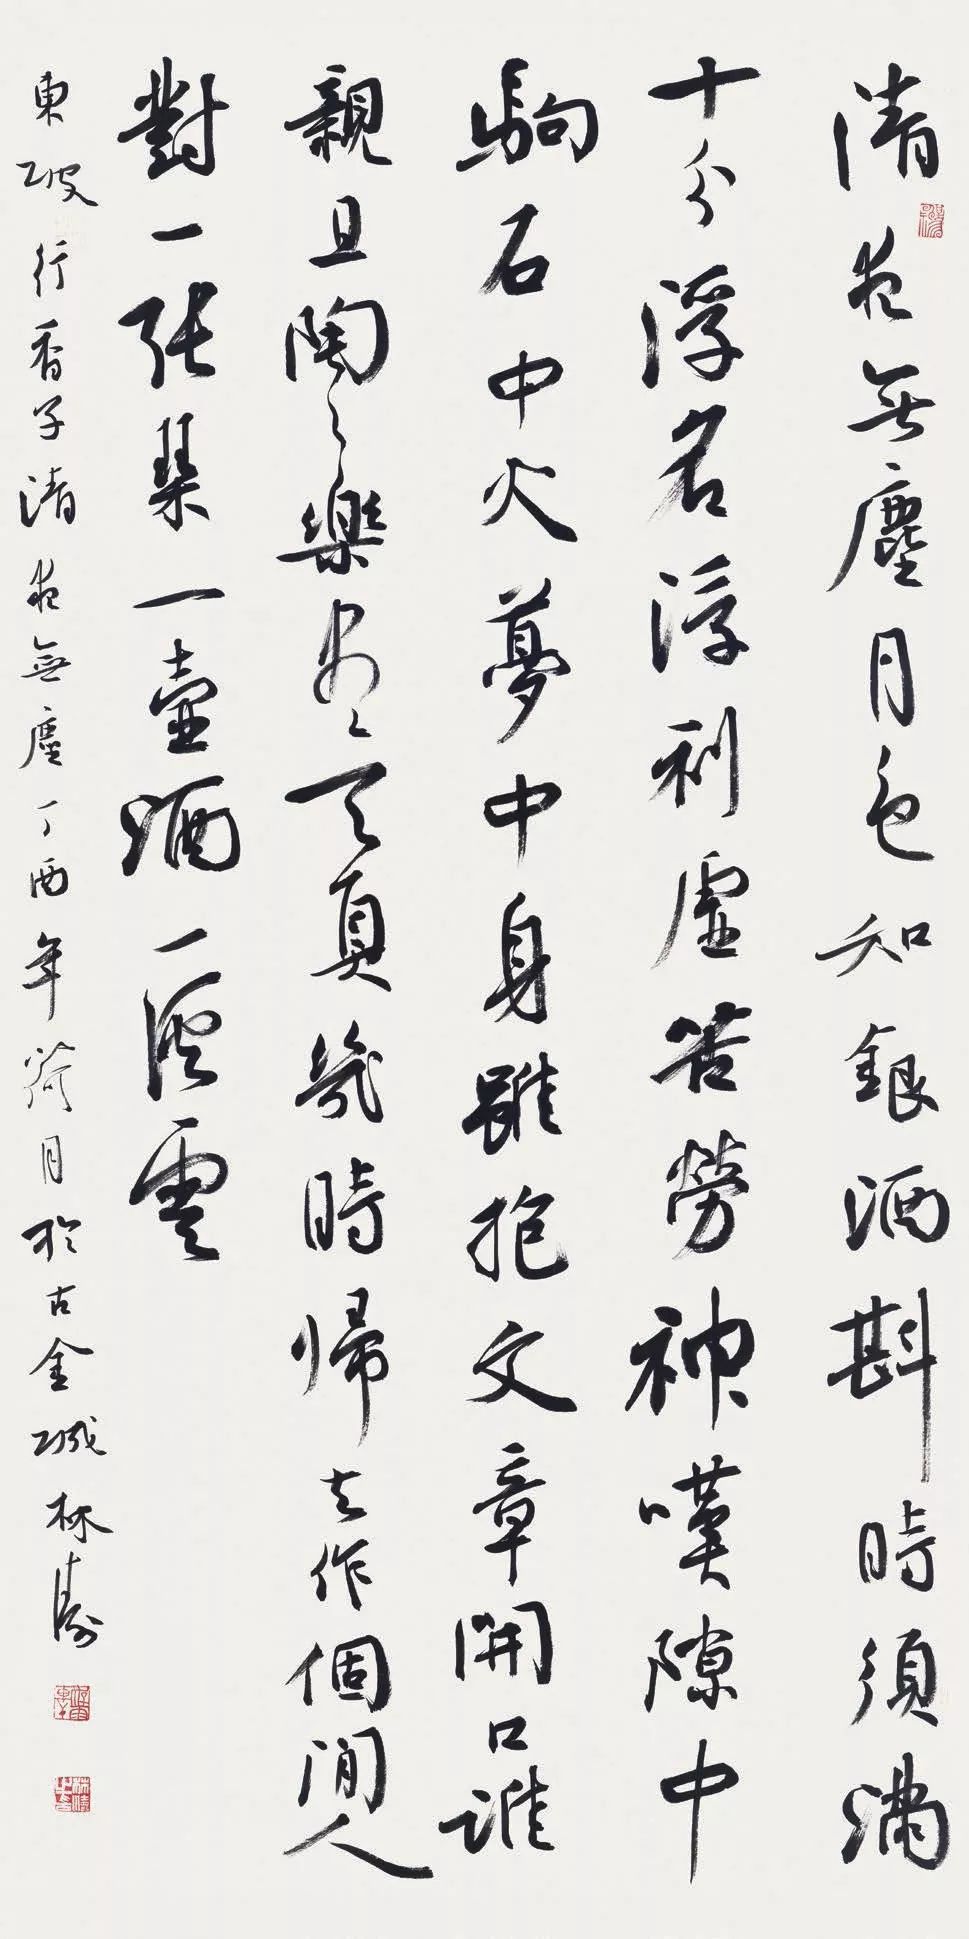 清夜無塵月色如銀酒斟時須滿
十分浮名浮利虛苦勞神嘆隙中
駒石中火夢中身雖抱文章開口誰
親且陶々樂盡天真幾時帰去作個閒人
對一張琴一壺酒一溪雲
東坡行香子清夜無塵丁酉年荷月於古金城林濤